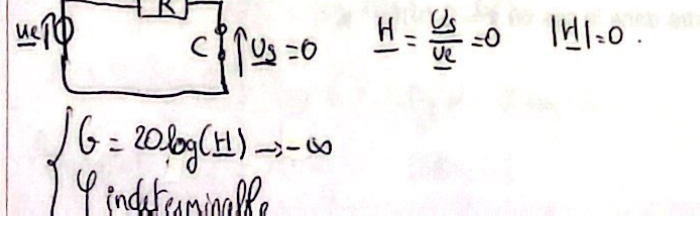 R
ue
C
Us = 0
H = Us/ue = 0
|H| = 0.
G = 20log(H) → -∞
φ indeterminable